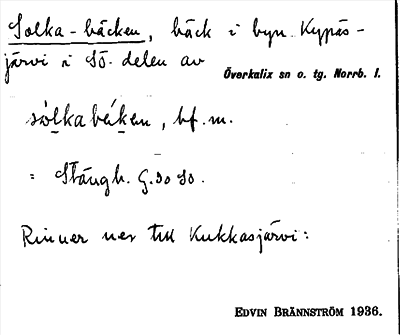 Solka-bäcken, bäck i byn Kypäs-
järvi i SÖ. delen av
Överkalix sn o. tg. Norrb. l.
sòlkabékən, bf. m.
= Stängb. G.30 SO.
Rinner ner till Kukkasjärvi:
EDVIN BRÄNNSTRÖM 1936.